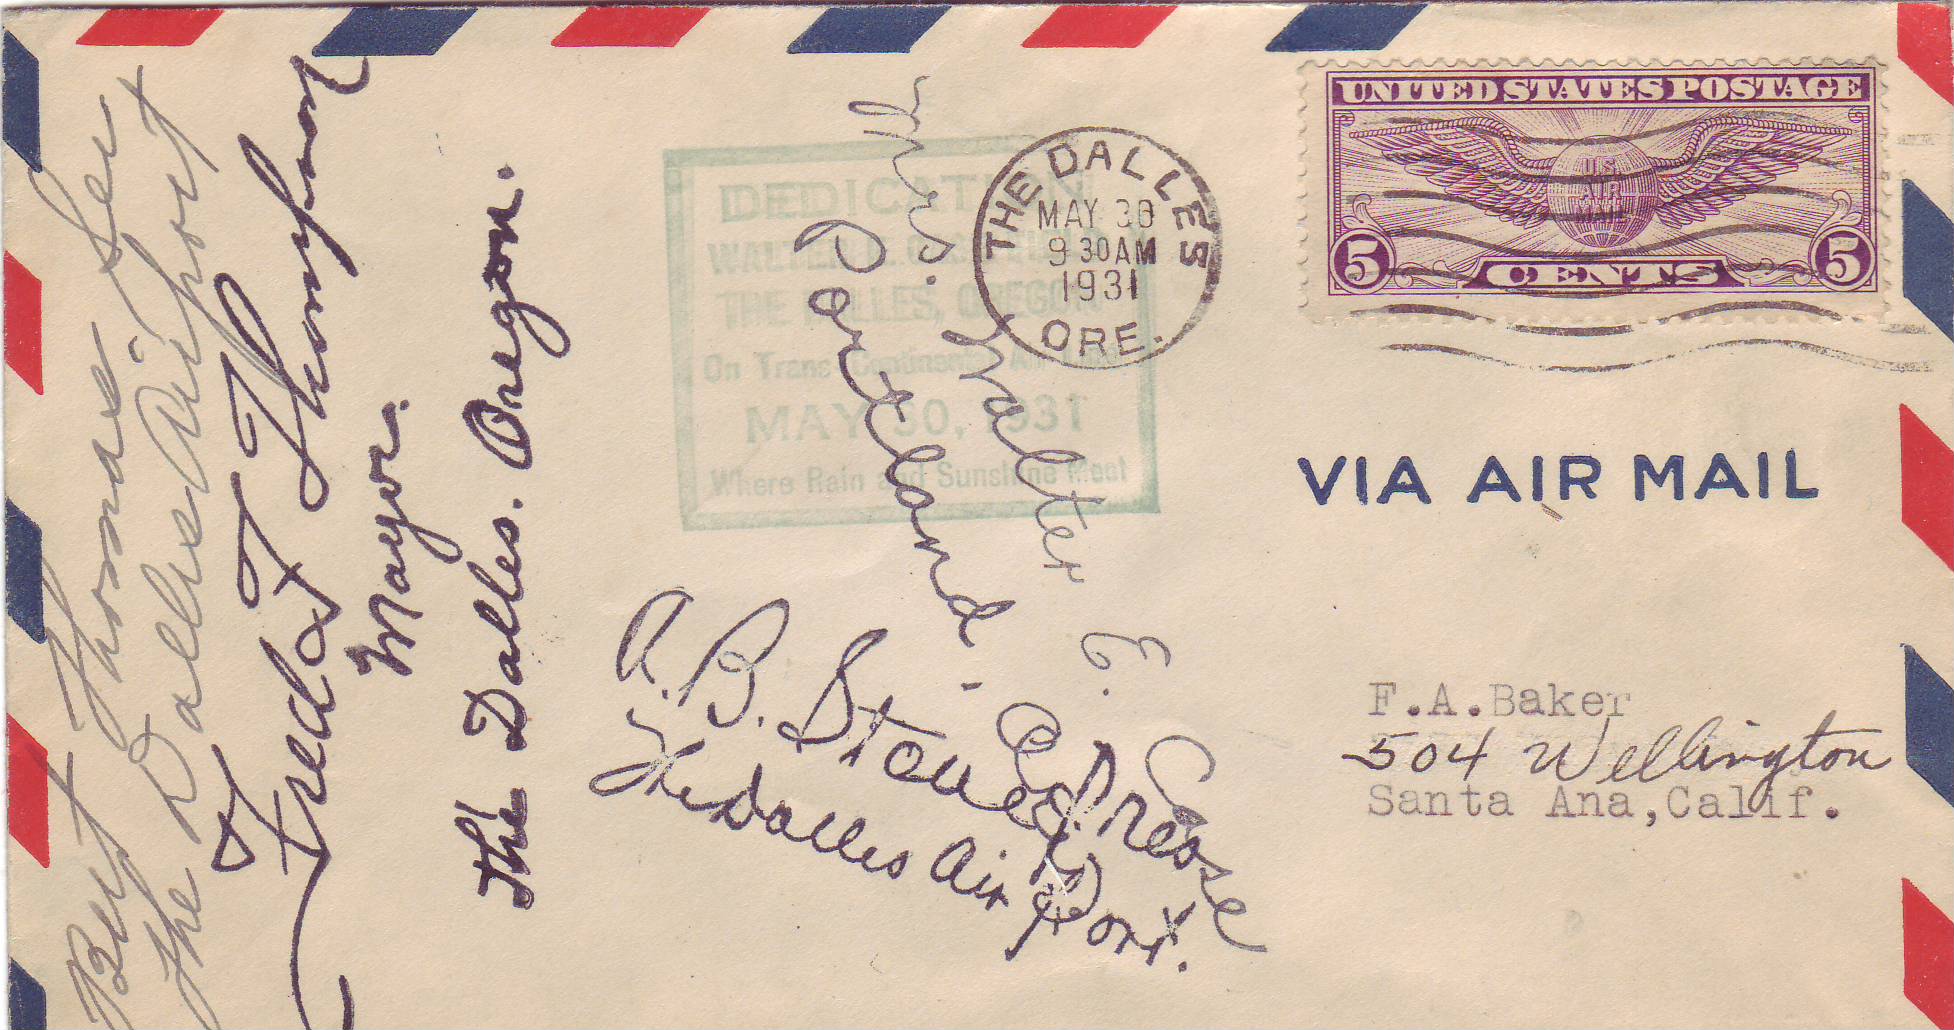 UNITED STATES POSTAGE
U.S.
AIR
MAIL
5 CENTS 5
THE DALLES
MAY 30
9 30 AM
1931
ORE.
DEDICATION
WALTER E.
THE DALLES, OREGON
On Trans-Continental Air
MAY 30, 1931
Where Rain and Sunshine Meet
VIA AIR MAIL
F.A.Baker
504 Wellington
Santa Ana,Calif.
Burt Thomas. Sec
The Dalles Airport
Fred F Thompson
Mayor.
The Dalles. Oregon.
Mrs. Walter E. Case
Portland - Ore
A. B. Stoned
The Dalles Air Port.